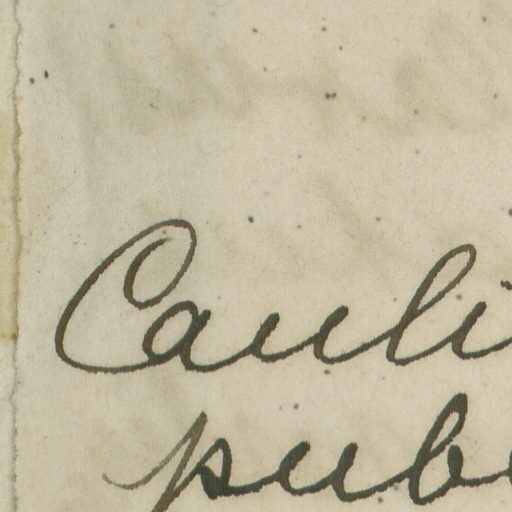 Cauli
pube